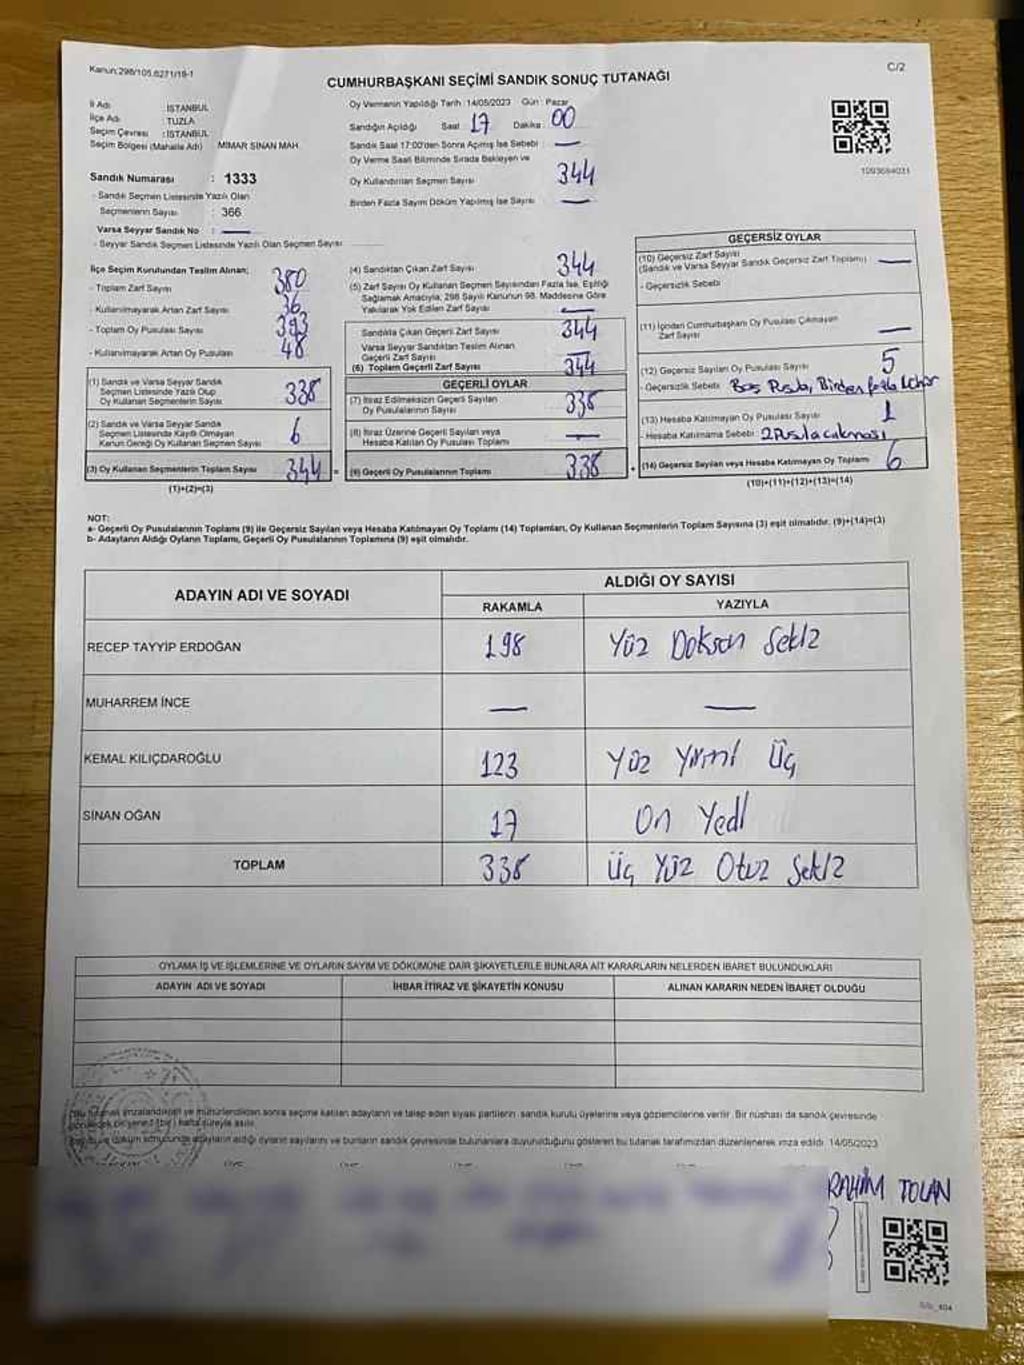 Kanun:298/105,6271/19-1
C/2
CUMHURBAŞKANI SEÇİMİ SANDIK SONUÇ TUTANAĞI
İl Adı : İSTANBUL
İlçe Adı : TUZLA
Seçim Çevresi : İSTANBUL
Seçim Bölgesi (Mahalle Adı) MİMAR SİNAN MAH.
Sandık Numarası : 1333
- Sandık Seçmen Listesinde Yazılı Olan
Seçmenlerin Sayısı : 366
Varsa Seyyar Sandık No : —
- Seyyar Sandık Seçmen Listesinde Yazılı Olan Seçmen Sayısı
Oy Vermenin Yapıldığı Tarih : 14/05/2023 Gün : Pazar
Sandığın Açıldığı Saat : 17 Dakika : 00
Sandık Saat 17:00'den Sonra Açılmış İse Sebebi : —
Oy Verme Saati Bitiminde Sırada Bekleyen ve
Oy Kullandırılan Seçmen Sayısı 344
Birden Fazla Sayım Döküm Yapılmış İse Sayısı —
1093694031
İlçe Seçim Kurulundan Teslim Alınan;
- Toplam Zarf Sayısı 380
- Kullanılmayarak Artan Zarf Sayısı 36
- Toplam Oy Pusulası Sayısı 393
- Kullanılmayarak Artan Oy Pusulası 48
(1) Sandık ve Varsa Seyyar Sandık
Seçmen Listesinde Yazılı Olup
Oy Kullanan Seçmenlerin Sayısı 338
(2) Sandık ve Varsa Seyyar Sandık
Seçmen Listesinde Kayıtlı Olmayan
Kanun Gereği Oy Kullanan Seçmen Sayısı 6
(3) Oy Kullanan Seçmenlerin Toplam Sayısı 344 =
(1)+(2)=(3)
(4) Sandıktan Çıkan Zarf Sayısı 344
(5) Zarf Sayısı Oy Kullanan Seçmen Sayısından Fazla İse, Eşitliği
Sağlamak Amacıyla; 298 Sayılı Kanunun 98. Maddesine Göre
Yakılarak Yok Edilen Zarf Sayısı —
Sandıkta Çıkan Geçerli Zarf Sayısı 344
Varsa Seyyar Sandıktan Teslim Alınan
Geçerli Zarf Sayısı —
(6) Toplam Geçerli Zarf Sayısı 344
GEÇERLİ OYLAR
(7) İtiraz Edilmeksizin Geçerli Sayılan
Oy Pusulalarının Sayısı 338
(8) İtiraz Üzerine Geçerli Sayılan veya
Hesaba Katılan Oy Pusulası Toplamı —
(9) Geçerli Oy Pusulalarının Toplamı 338 +
GEÇERSİZ OYLAR
(10) Geçersiz Zarf Sayısı
(Sandık ve Varsa Seyyar Sandık Geçersiz Zarf Toplamı) —
- Geçersizlik Sebebi
(11) İçinden Cumhurbaşkanı Oy Pusulası Çıkmayan
Zarf Sayısı —
(12) Geçersiz Sayılan Oy Pusulası Sayısı 5
- Geçersizlik Sebebi Boş Pusula, Birden fazla
(13) Hesaba Katılmayan Oy Pusulası Sayısı 1
- Hesaba Katılmama Sebebi 2 Pusula çıkması
(14) Geçersiz Sayılan veya Hesaba Katılmayan Oy Toplamı 6
(10)+(11)+(12)+(13)=(14)
NOT:
a- Geçerli Oy Pusulalarının Toplamı (9) ile Geçersiz Sayılan veya Hesaba Katılmayan Oy Toplamı (14) Toplamları, Oy Kullanan Seçmenlerin Toplam Sayısına (3) eşit olmalıdır. (9)+(14)=(3)
b- Adayların Aldığı Oyların Toplamı, Geçerli Oy Pusulalarının Toplamına (9) eşit olmalıdır.
ADAYIN ADI VE SOYADI
ALDIĞI OY SAYISI
RAKAMLA YAZIYLA
RECEP TAYYİP ERDOĞAN 198 Yüz Doksan Sekiz
MUHARREM İNCE — —
KEMAL KILIÇDAROĞLU 123 Yüz Yirmi Üç
SİNAN OĞAN 17 On Yedi
TOPLAM 338 Üç Yüz Otuz Sekiz
OYLAMA İŞ VE İŞLEMLERİNE VE OYLARIN SAYIM VE DÖKÜMÜNE DAİR ŞİKAYETLERLE BUNLARA AİT KARARLARIN NELERDEN İBARET BULUNDUKLARI
ADAYIN ADI VE SOYADI İHBAR İTİRAZ VE ŞİKAYETİN KONUSU ALINAN KARARIN NEDEN İBARET OLDUĞU
İşbu tutanak imzalandıktan ve mühürlendikten sonra seçime katılan adayların ve talep eden siyasi partilerin sandık kurulu üyelerine veya gözlemcilerine verilir. Bir nüshası da sandık çevresinde
görülecek bir yere 1 (bir) hafta süreyle asılır.
sayım ve döküm sonucunda adayların aldığı oyların sayılarını ve bunların sandık çevresinde bulunanlara duyurulduğunu gösteren bu tutanak tarafımızdan düzenlenerek imza edildi. 14/05/2023
RAHİM TOLAN